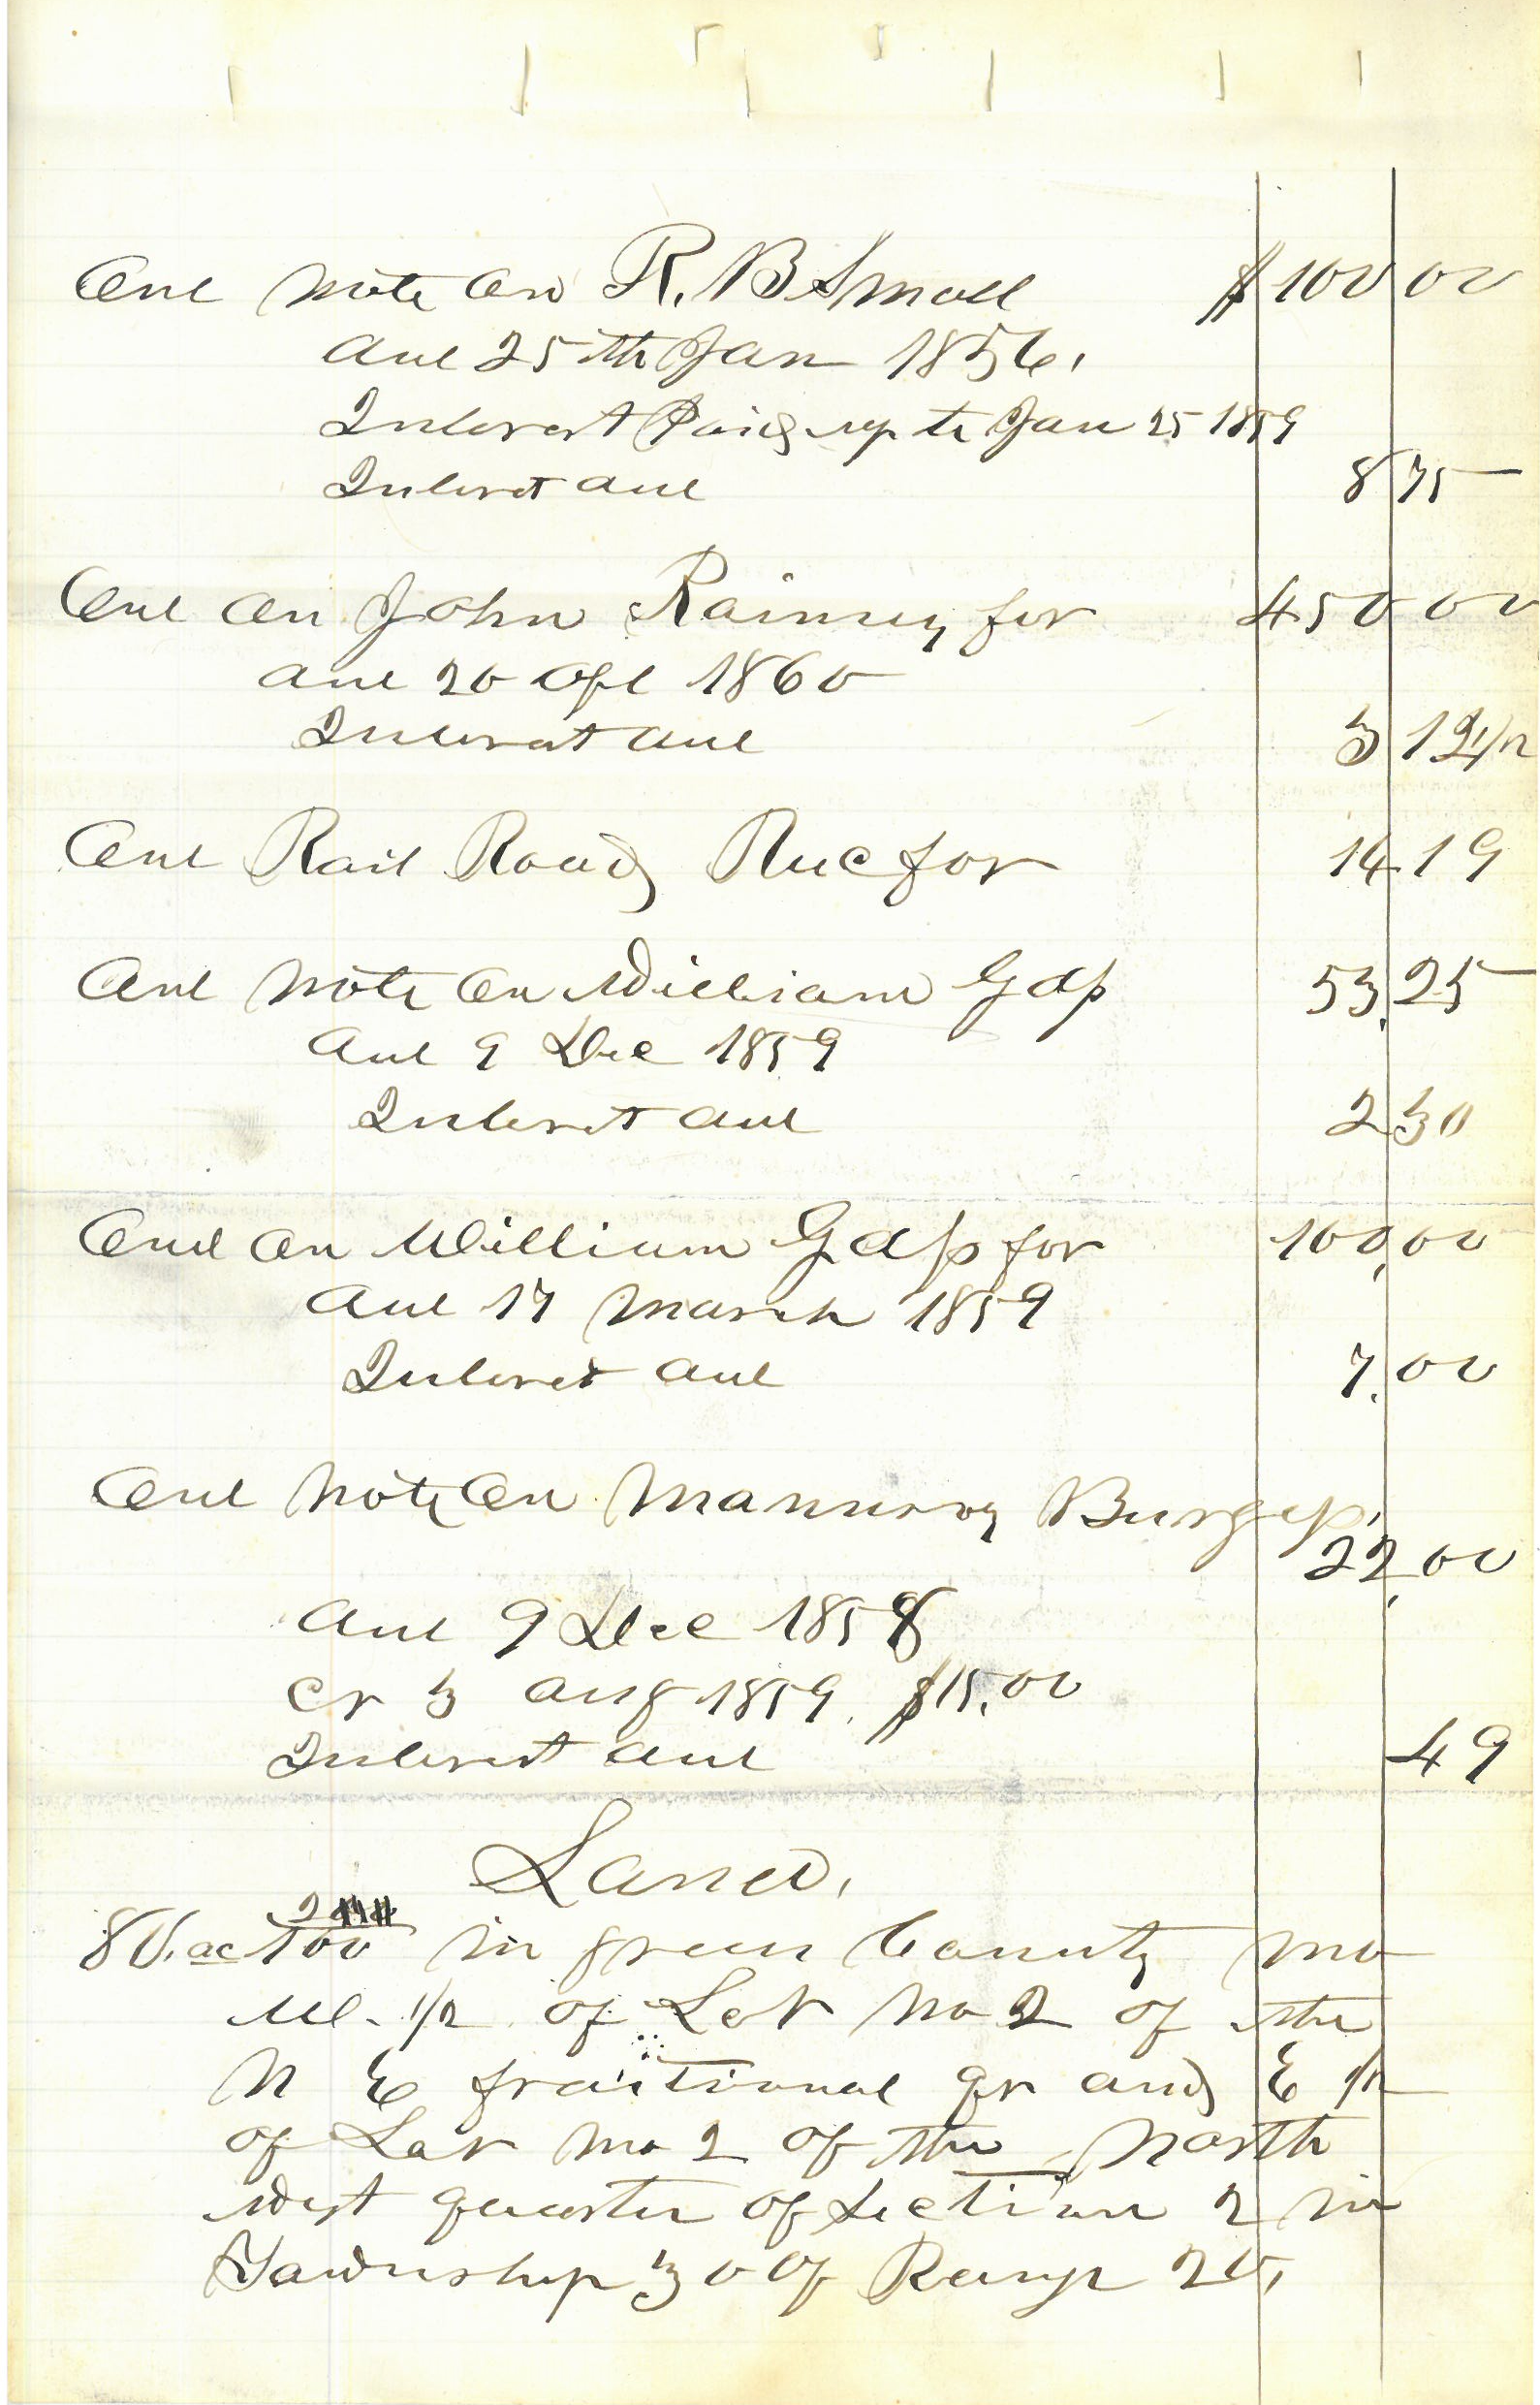 One note on R. B Small $100 00
due 25th Jan 1856.
Interest Paid up to Jan 25 1859
Interest due 8 75
One on John Rainey for 450 00
due 20 Apl 1860
Interest due 3 12 1/2
One Rail Road Rec for 14 19
One note on William Goss 53.25
due 9 Dec 1859
Interest due 2 30
One on William Goss for 100,00
due 17 March 1859
Interest due 7.00
One note on Burgess,
22,00
due 9 Dec 1858
Cr 3 Aug 1859. $15.00
Interest due 49
Land,
80. ac /100 in green County Mo
W. 1/2 of Lot No 2 of the
N E fractional qr and E 1/2
of Lot No 2 of the North
West quarter of Section 2 in
Township 30 of Range 20,